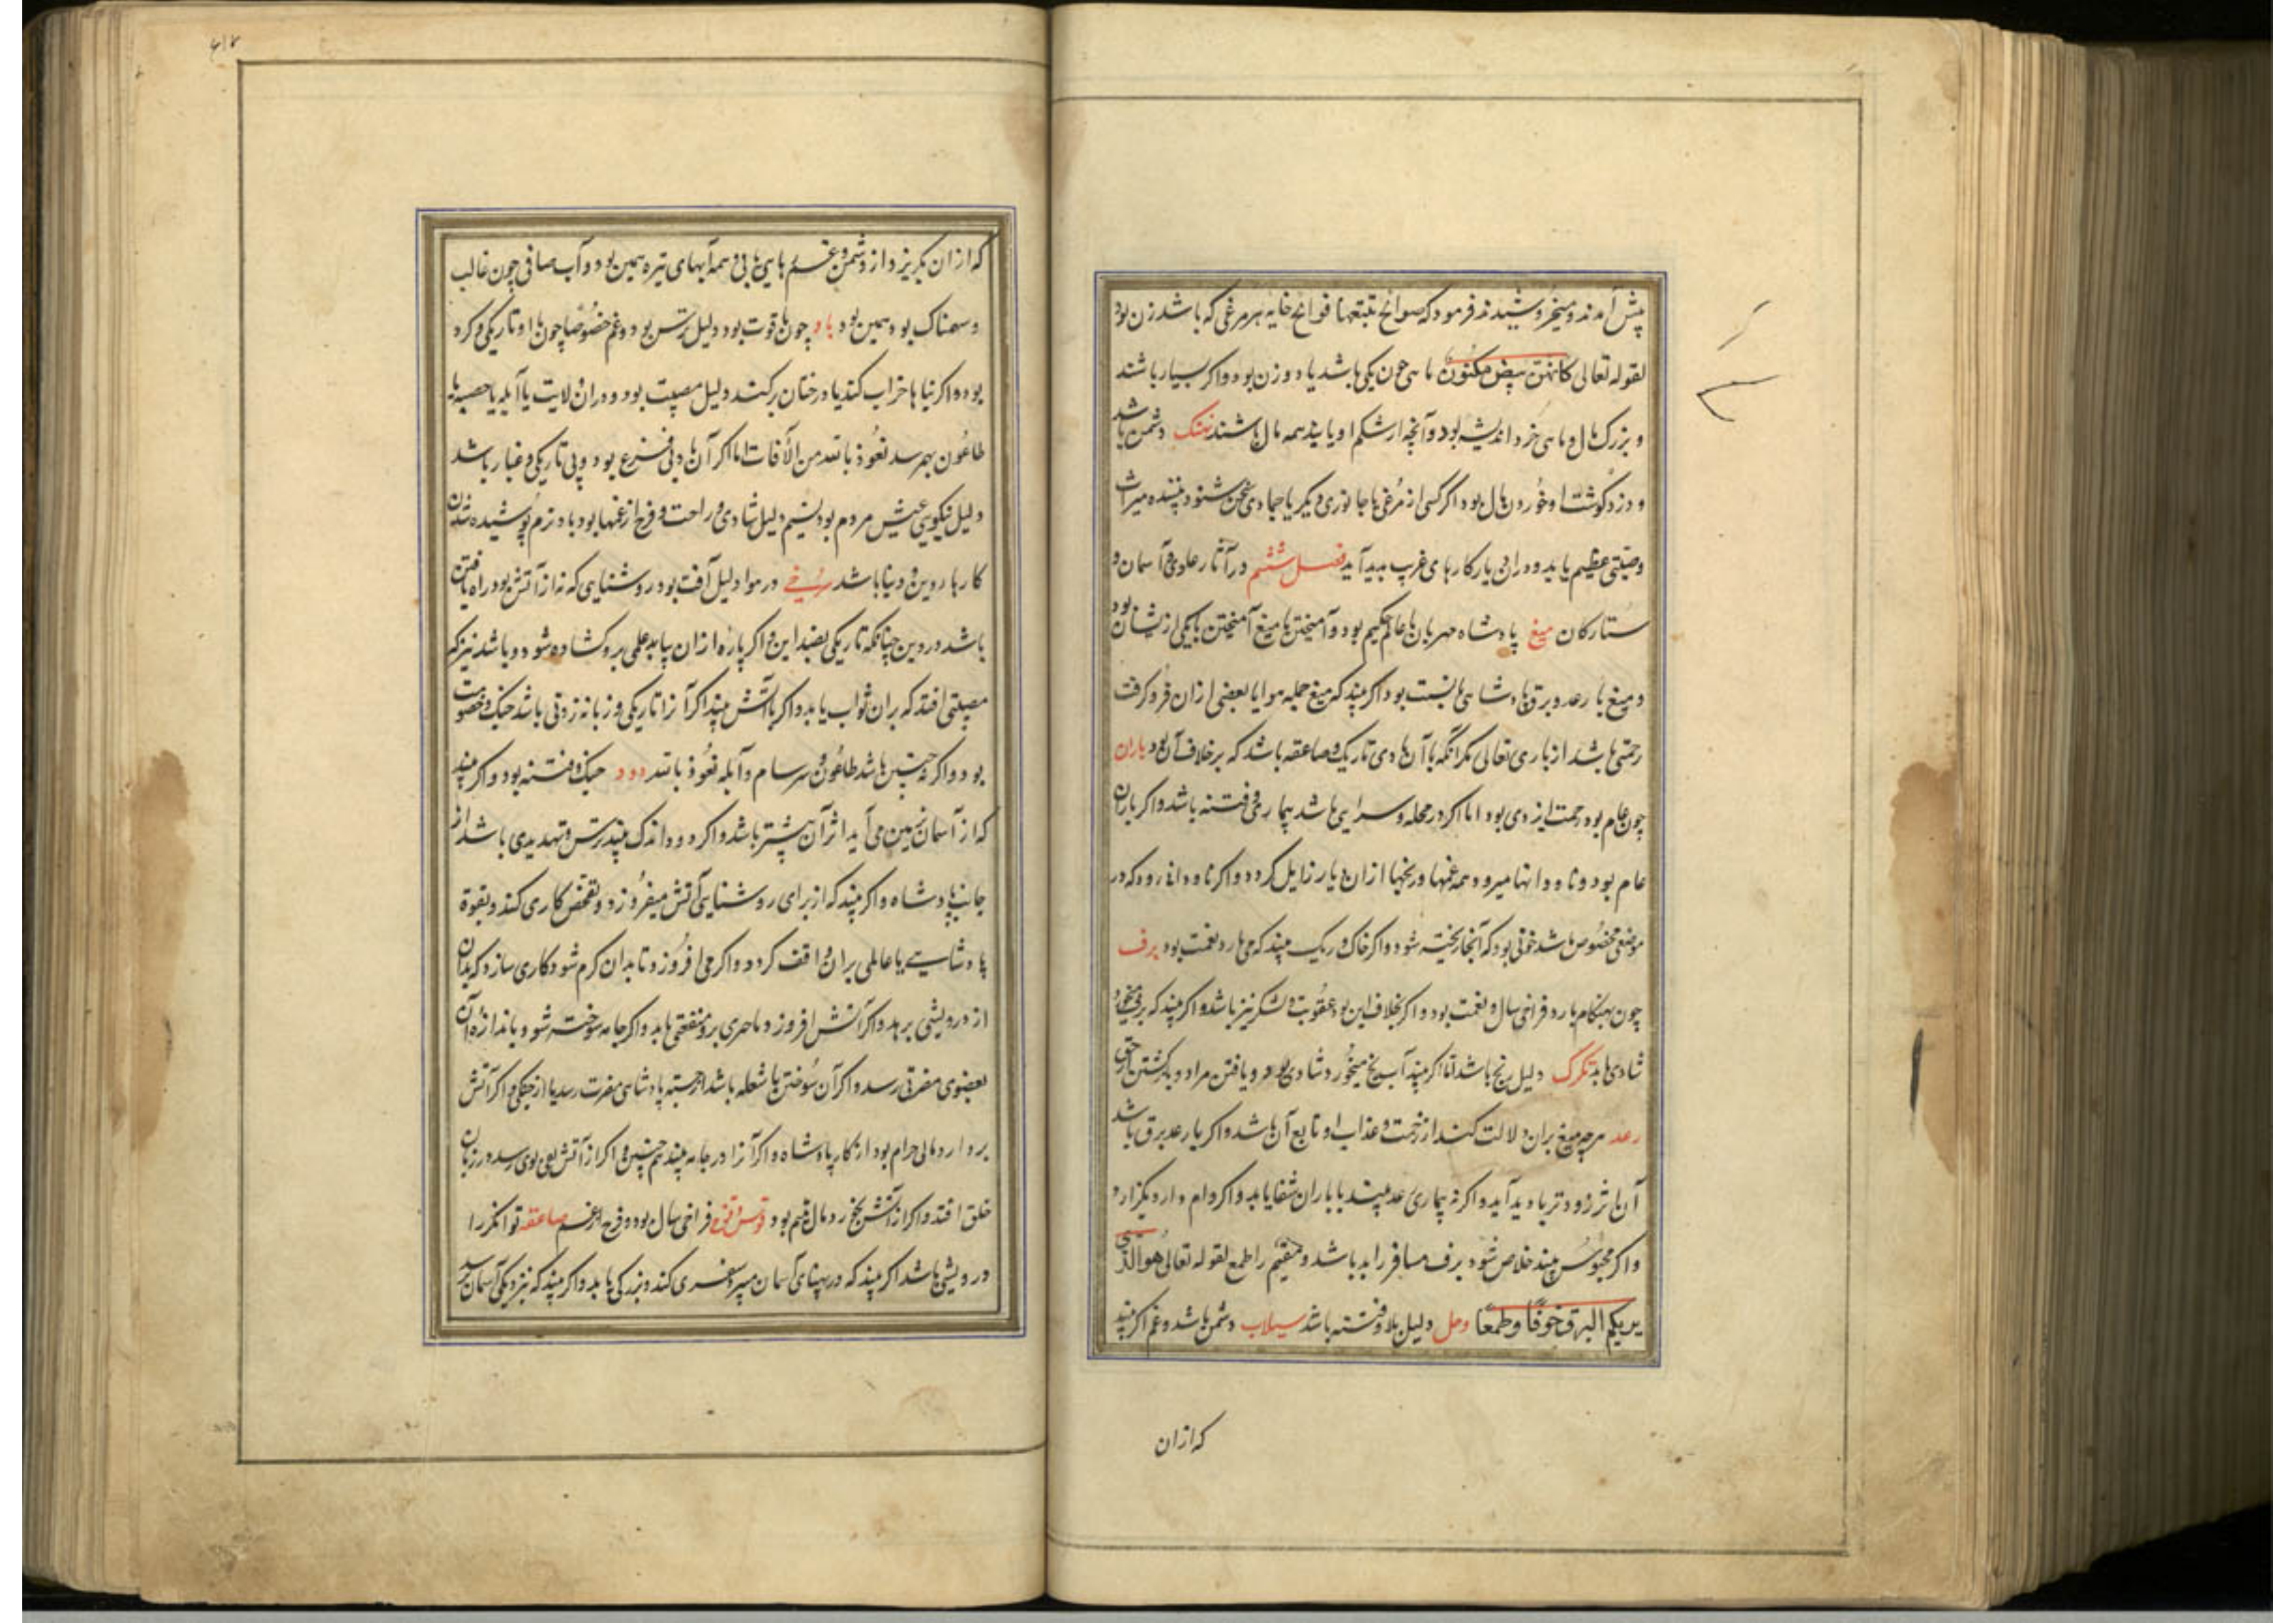 پیش آمدند و میخروشیدند فرمود که صوایح تتبعها فوایح خایه هر مرغی که باشد زن بود
لقوله تعالی کانهن بیض مکنون ماهی چون یکی باشد یا دو زن بود و اگر بسیار باشند
و بزرک مال و ماهی خرد اندیشه بود و آنچه از شکم او یابند همه مال باشد نهنک دشمن باشد
و دزد کوشت او خوردن مال بود اگر کسی از مرغی یا جانوری دیکر یا جمادی سخن شنود بیننده میراث
وصیتی عظیم یابد و در ان دیار کارهای غریب پدید آید فصل ششم در آثار علوی و آسمان و
ستارکان میغ پادشاه مهربان یا عالم حکیم بود و آمیختن با میغ آمیختن با یکی از ایشان بود
و میغ با رعد و برق پادشاهی با هیبت بود اگر بیند که میغ جمله هوا یا بعضی از ان فرو کرفت
رحمتی باشد از باری تعالی مکر آنکه با آن بادی تاریک و صاعقه باشد که بر خلاف آن بود باران
چون عام بود رحمت ایزدی بود اما اکر در محله و سرایی باشد بیماری و فتنه باشد و اکر باران
عام بود و ناودانها میرود همه غمها و رنجها از ان دیار زایل کردد و اکر ناودانی رود که در
موضعی مخصوص باشد خونی بود که آنجا ریخته شود و اکر خاک و ریک بیند که می بارد نعمت بود برف
چون بهنکام بارد فراخی سال و نعمت بود و اکر بخلاف این بود عقوبت و لشکر نیز باشد و اکر بیند که برف میخورد
شادی یابد تکرک دلیل رنج باشد اما اکر بیند آب یخ میخورد شادی بود و یافتن مراد
رعد هرچه میغ بران دلالت کند از رحمت و عذاب او تابع آن باشد و اکر با رعد برق باشد
آن اثر زودتر پدید آید و اکر نه بیماری رعد بیند با باران شفا یابد و اکر وام دارد بکزارد
و اکر محبوس بیند خلاص شود برف مسافر را بد باشد و مقیم را طمع لقوله تعالی هو الذی
یریکم البرق خوفا و طمعا وحل دلیل بلا و فتنه باشد سیلاب دشمن باشد و غم اکر بیند
که ازان
که ازان بکریزد از دشمن و غم رهایی یابد و همه آبهای تیره همین بود و آب صافی چون غالب
و سهمناک بود همین بود باد چون با قوت بود دلیل ترس بود و غم خصوصا چون با او تاریکی و کرد
بود و اکر بناها خراب کند یا درختان برکند دلیل مصیبت بود و در ان ولایت یا آبله یا حصبه یا
طاعون بهم رسد نعوذ بالله من الآفات اما اکر آن باد بی فزع بود و بی تاریکی و غبار باشد
دلیل نیکویی عیش مردم بود نسیم دلیل شادی و راحت و فرج از غمها بود باد نرم پوشیده شدن
کارها در دین و دنیا باشد سرخی در هوا دلیل آفت بود روشنایی که نه از آتش بود راه یافتن
باشد در دین چنانکه تاریکی بضد این و اکر پاره ازان بیابد علمی برو کشاده شود و باشد نیز که
مصیبتی افتد که بران ثواب یابد و اکر با آتش بیند اکر آنرا تاریکی و زبانه زدنی باشد جنک و خصومت
بود و اکر نه چنین باشد طاعون و سرسام و آبله نعوذ بالله دود جنک و فتنه بود و اکر بیند
که از آسمان بزمین می آید اثر آن بیشتر باشد و اکر دود اندک بیند ترس و تهدیدی باشد از
جانب پادشاه و اکر بیند که از برای روشنایی آتش میفروزد و تفحص کاری کند و بقوة
پادشاهی یا عاملی بران واقف کردد و اکر می افروزد تا بدان کرم شود کاری سازد که بدان
از درویشی برهد و اکر آتش افروزد منفعتی یابد و اکر جامه سوخته شود باندازه آن
بعضوی مضرتی رسد و اکر آن سوختن با شعله باشد از جهة پادشاهی مضرت رسد یا از جنکی و اکر آتش
بردارد مالی حرام بود از کار پادشاه و اکر آنرا در جامه بیند هم چنین و اکر از آتش تفی بوی رسد در زبان
خلق افتد و اکر از آتش بخورد مال یتیم بود قوس قزح فراخی سال بود و فرج از غم صاعقه توانکر را
درویشی باشد اکر بیند که در پهنای آسمان میپرد سفری کند و بزرکی یابد و اکر بیند که بنزدیکی آسمان رسید